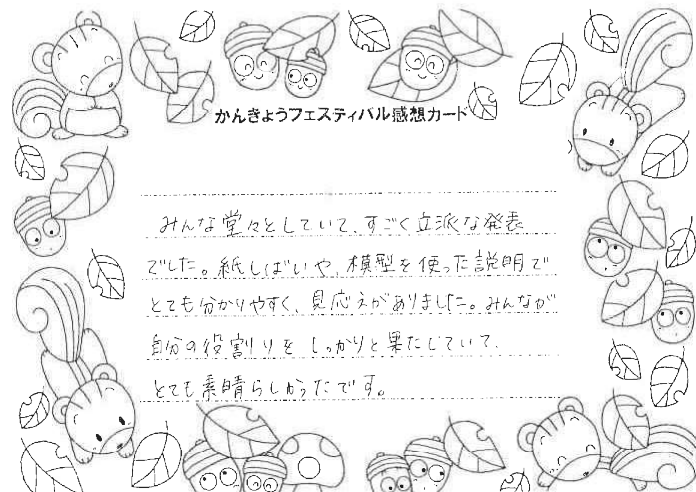 かんきょうフェスティバル感想カード
みんな堂々としていて、すごく立派な発表
でした。紙しばいや、模型を使った説明で
とても分かりやすく、見応えがありました。みんなが
自分の役割りをしっかりと果たしていて、
とても素晴らしかったです。